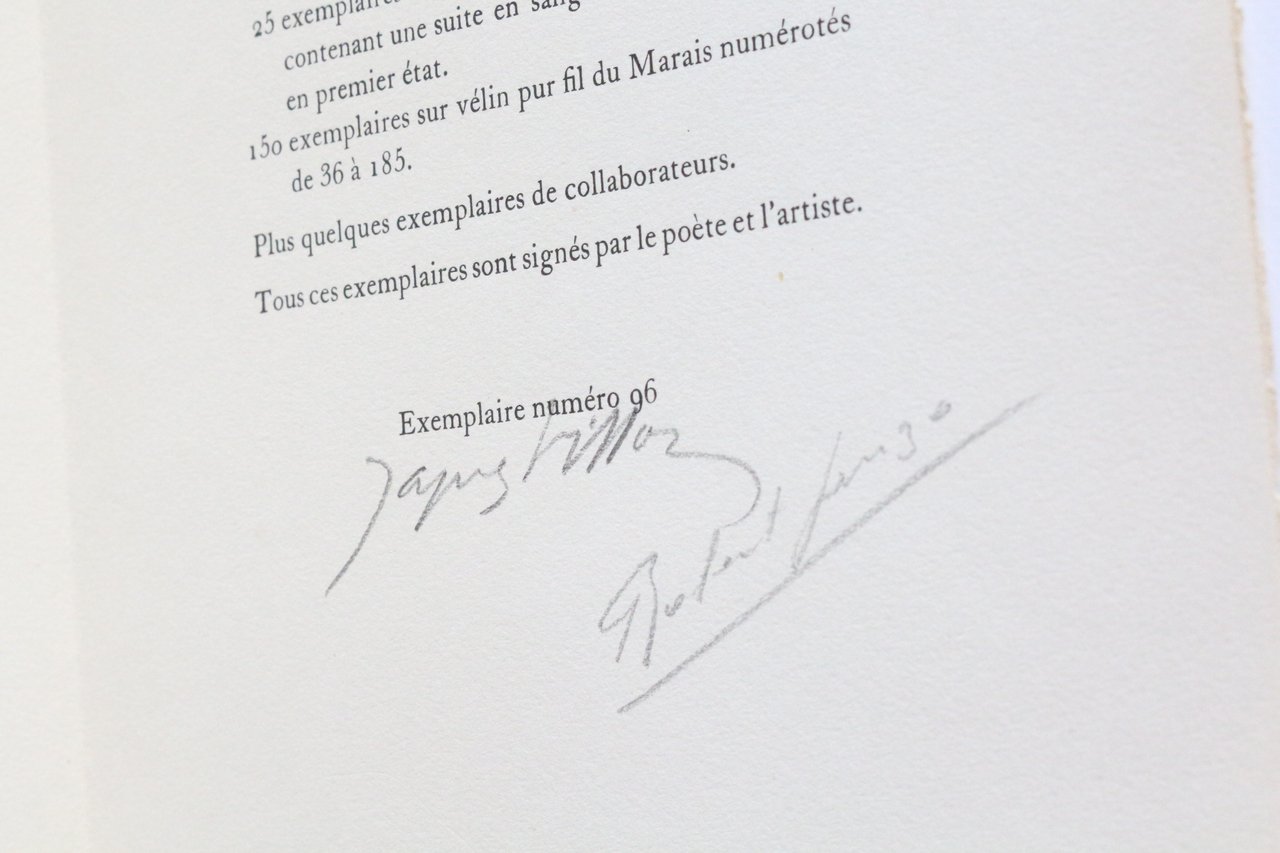 25 exemplaires
contenant une suite en sang
en premier état.
150 exemplaires sur vélin pur fil du Marais numérotés
de 36 à 185.
Plus quelques exemplaires de collaborateurs.
Tous ces exemplaires sont signés par le poète et l'artiste.
Exemplaire numéro 96
Jacques Villon
Robert